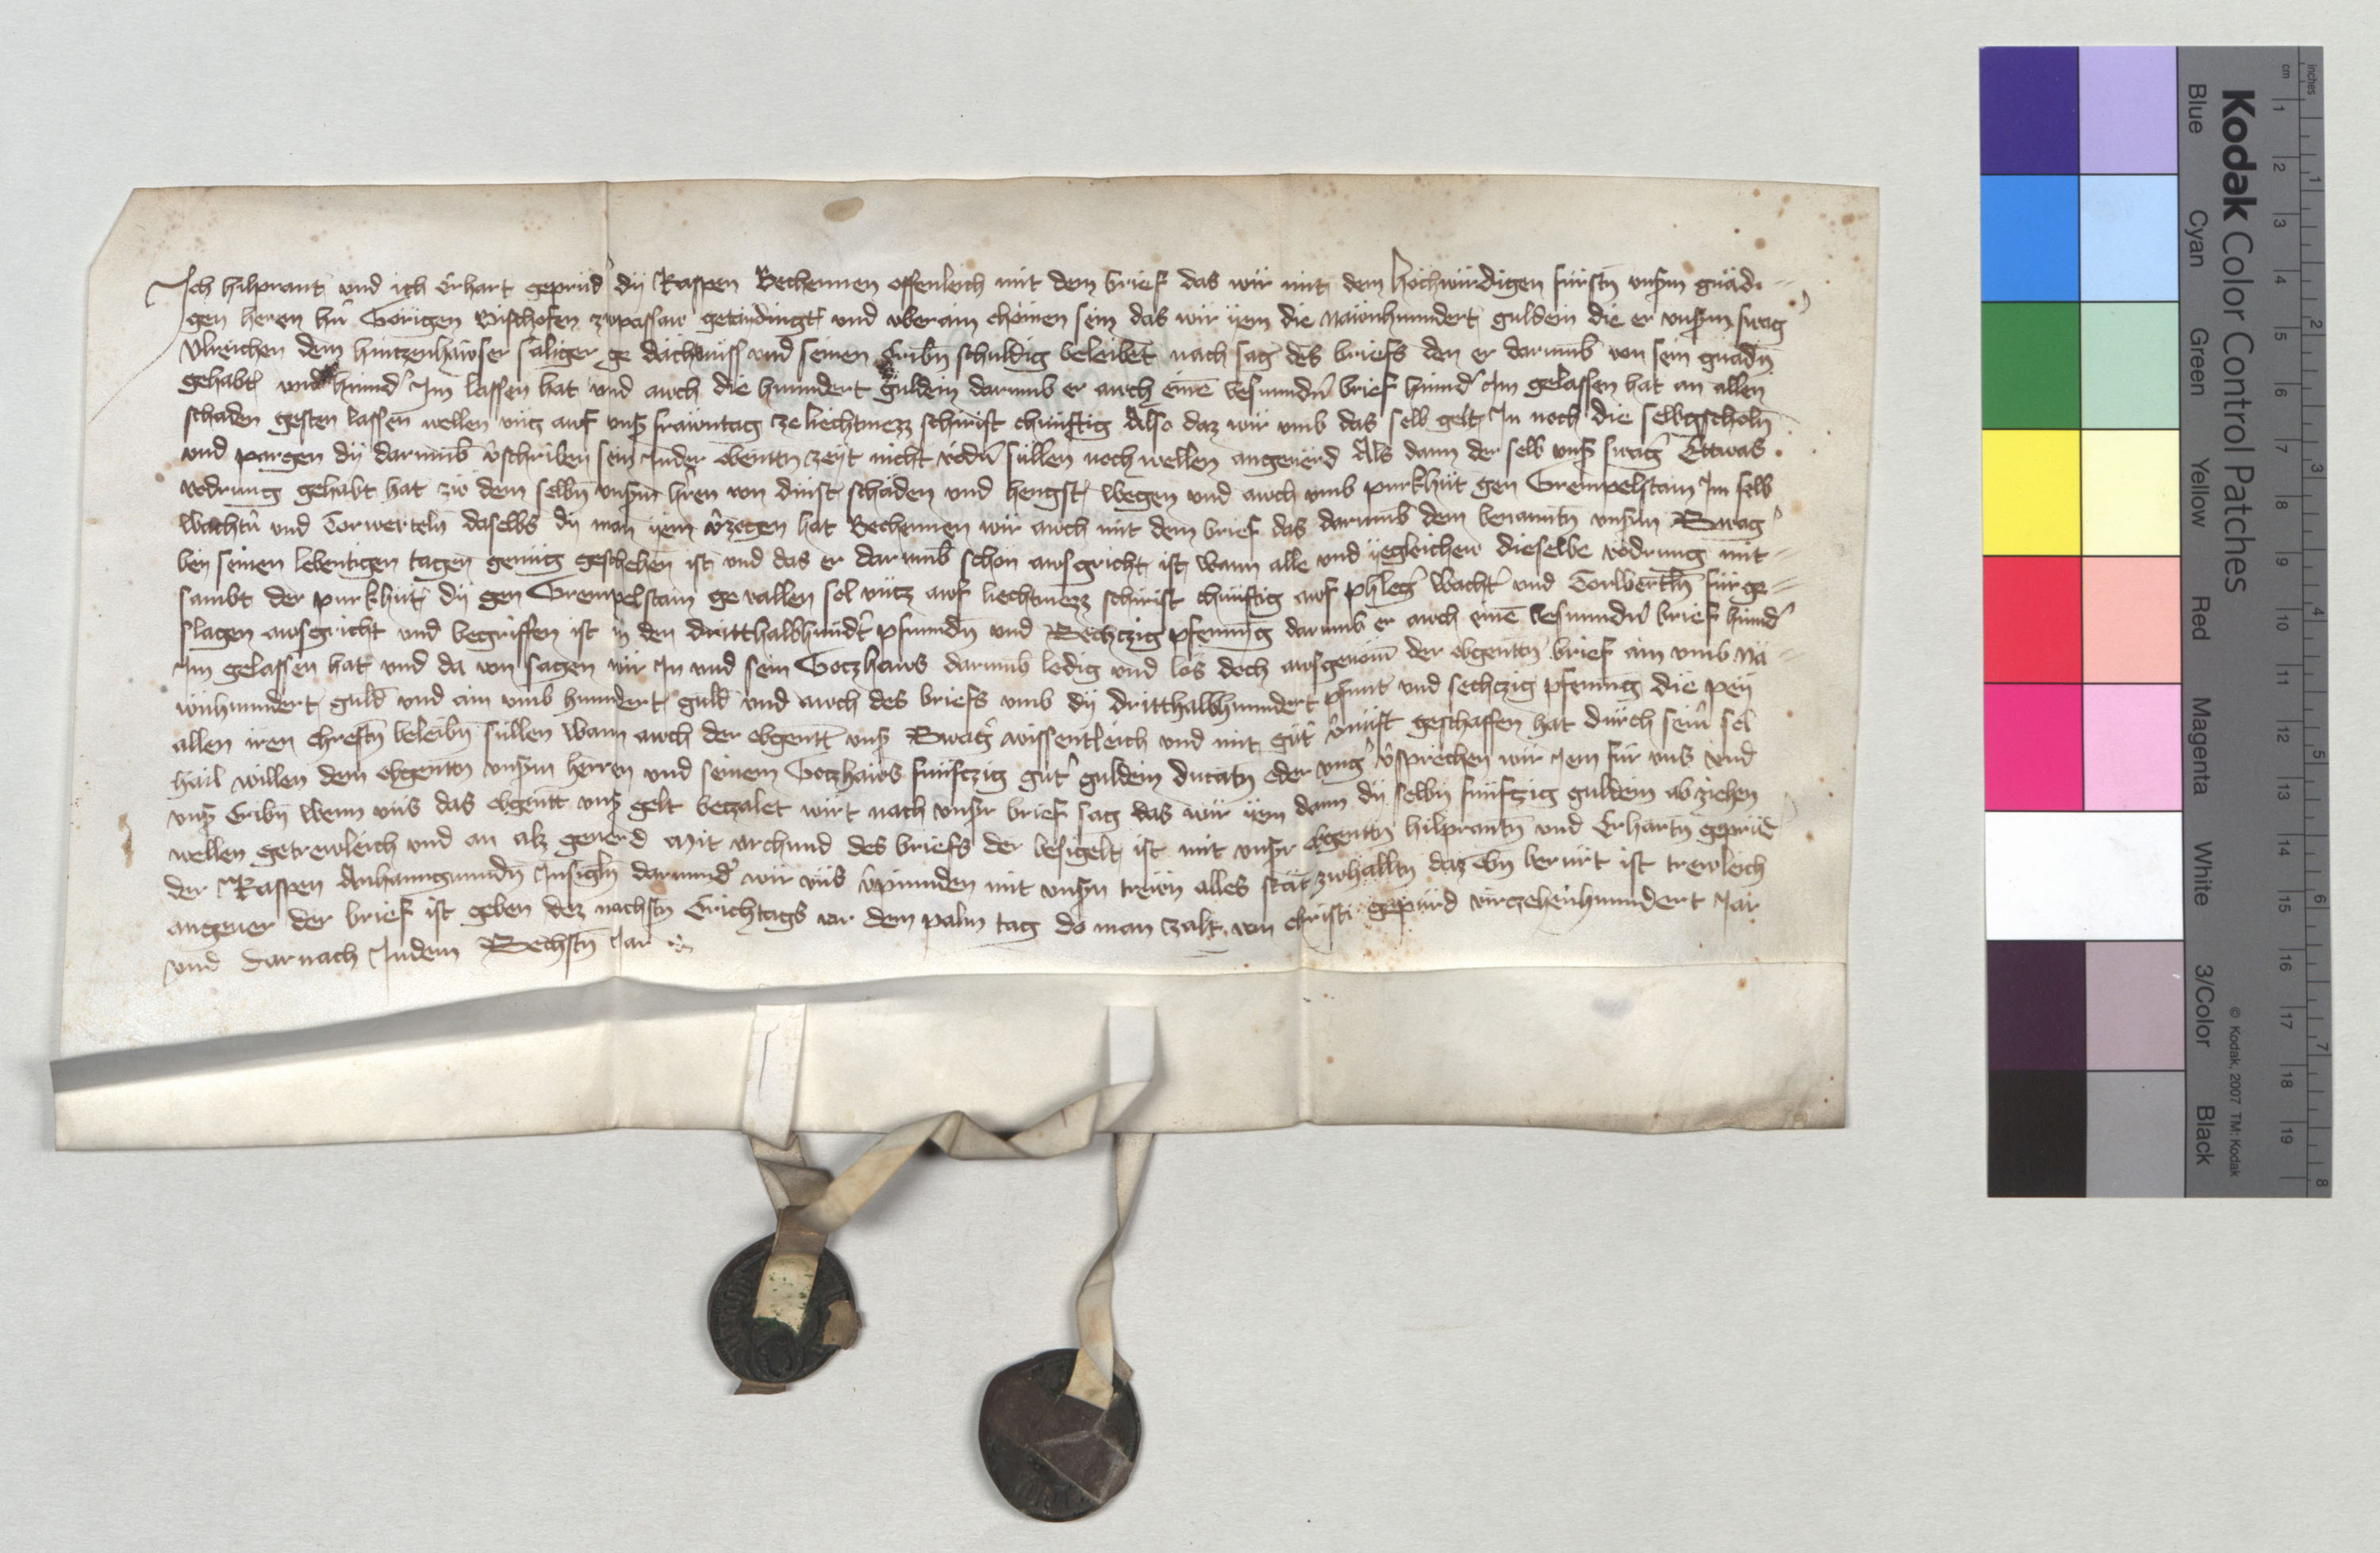 Ich hilprant und ich Erhart geprüd dÿ Raspen Bechennen offenleich mit dem brief das wir mit dem hochwürdigen fürstn̄ unsm̄ gnädi=
gen heren hn̄ Görigen Bischofen zupassaw getaidingt und uberain chömen sein das wir jem die Naiwnhunndert guldein die er unserm swag̉
Ulreichen dem hintzenhawser säliger ge dächtnüss und seinen Eribn̄ schuldig beleibet nach sag des briefs den er darumb von sein gnadn̄
gehabt und hinnd̉ Im lassen hat und auch die hunndert guldein darumb er auch eine besunndn̄ brief hinnd̉ Im gelassen hat an allen
schaden gesten lassen wellen uncz auf unser frawntag ze liechtmezz schirist chünftig Also daz wir umb das selb gelt In noch die selbgscholn̄
und pargen dÿ darumb v̉schriben sein Inder obentn̄ zeyt nicht vodn̉ süllen noch wellen angeuerd Als dann der selb unser swag̉ Ettwas
vodrung gehabt hat zw dem selbn̄ unsm̄ hr̄en von dinst schäden und hengst wegen und auch umb purkhüt gen Grempelstain Im selb
Wachtn̄ und Torwerteln daselbs dÿ man jem v̉zogen hat Bechennen wir auch mit dem brief das darumb dem benantn̄ unsm̄ Swag̉
beÿ seinen lebentigen tagen genüg geschehen ist und das er darumb schon ausgricht ist wann alle und jegleichew dieselbe vodrung mit=
sambt der purkhüt dÿ gen Grempelstain geuallen sol uncz auf liechtmezz schirist chünftig auf phleg̉ Wacht̉ und Torwertln̄ für ge=
slagen ausgricht und begriffen ist in den dritthalbhundt̉ pfunndn̄ und Sechczig pfenning darumb er auch eine besunndn̄ brief hinnd̉
Im gelassen hat und da von sagen wir In und sein Gotzhaws darumb ledig und los doch ausgenom̄ der obgentn̄ brief ain umb Nä=
wnhunndert guld̄ und ain umb hunndert guld̄ und auch des briefs umb dÿ dritthalbhunndert pfunt und sechczig pfening die peÿ
allen iren chreftn̄ beleibn̄ süllen Wann auch der obgent̄ unser Swag̉ wissentleich und mit gut̉ v̉nüft geschaffen hat durch sein̉ sel
hail willen dem obgentn̄ unserm herren und seinem Gotzhaws fünfczig gut̉ guldein ducatn̄ oder ung̉ v̉sprechen wir Iem für uns und
unser Eribn̄ Wenn uns das obgent̄ unser gelt beczalet wirt nach unser brief sag das wir jem dann dÿ selbn̄ fünfczig guldein ab ziehen
wellen getrewleich und an alz geuerd Mit urchund des briefs der besigelt ist mit unser obgentn̄ hilprantn̄ und Erhartn̄ geprüd̉
der Raspen Anhanngunndn̄ Insigln̄ darund̉ wir uns v̉pinnden mit unsn̄ trewn alles stät zwhalltn̄ daz obn̄ berürt ist trewleich
angeuer der brief ist geben dez nachstn̄ Erichtags vor dem palm tag do man zalt von christi gepürd virczehenhunndert Jar
und Darnach Indem Sechstn̄ Jar
Kodak Color Control Patches
Blue Cyan Green Yellow Red Magenta White 3/Color Black
© Kodak, 2007 TM: Kodak
inches 1 2 3 4 5 6 7 8
cm 1 2 3 4 5 6 7 8 9 10 11 12 13 14 15 16 17 18 19